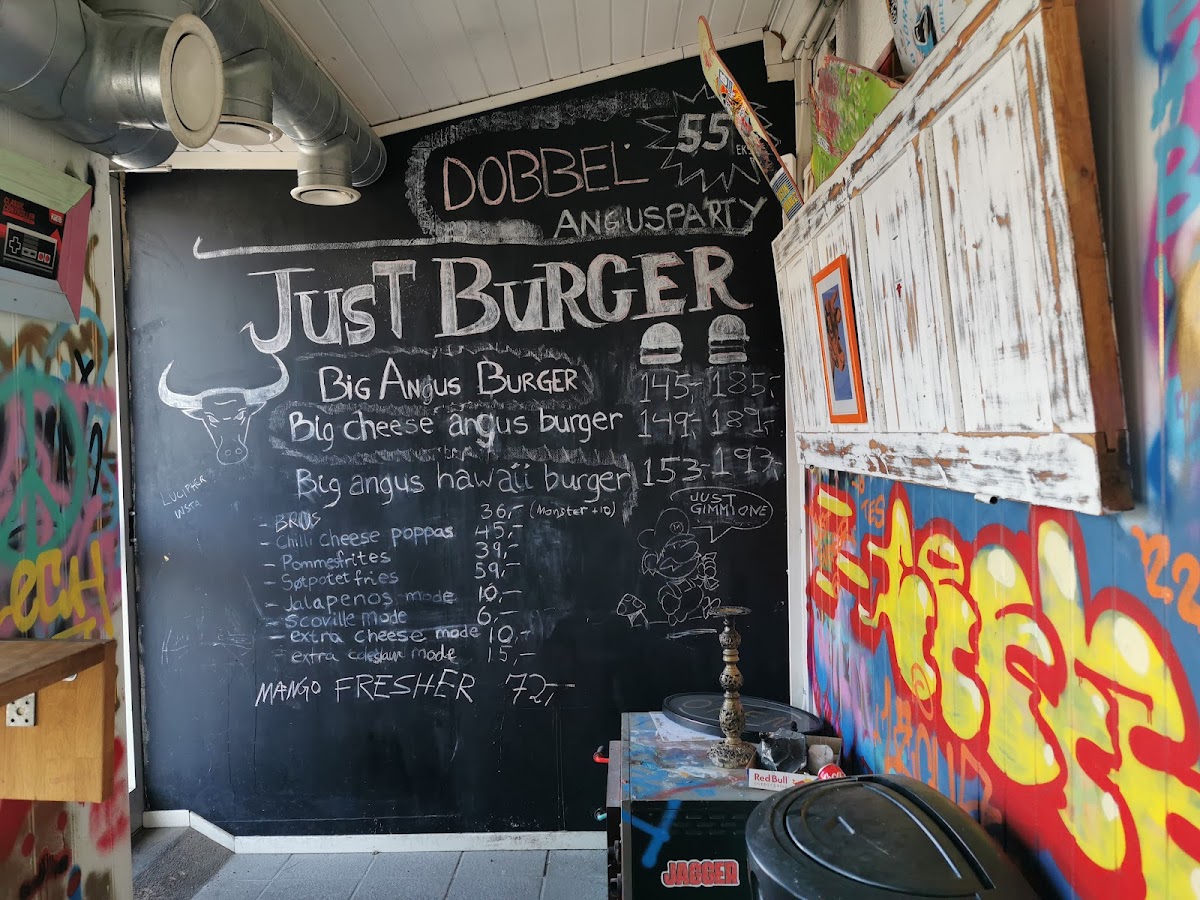 DOBBEL
55
ANGUSPARTY
JUST BURGER
BIG ANGUS BURGER 145,- 185,-
Big cheese angus burger 149,- 189,-
Big angus hawaii burger 153,- 193,-
- BRUS 36,- (Monster +10)
- Chilli cheese poppas 45,-
- Pommesfrites 39,-
- Søtpotet fries 59,-
- Jalapenos mode 10,-
- Scoville mode 6,-
- extra cheese mode 10,-
- extra coleslaw mode 15,-
MANGO FRESHER 72,-
JUST
GIMMI ONE
CLASSIC
CONTROLLER
Red Bull
JAGGER